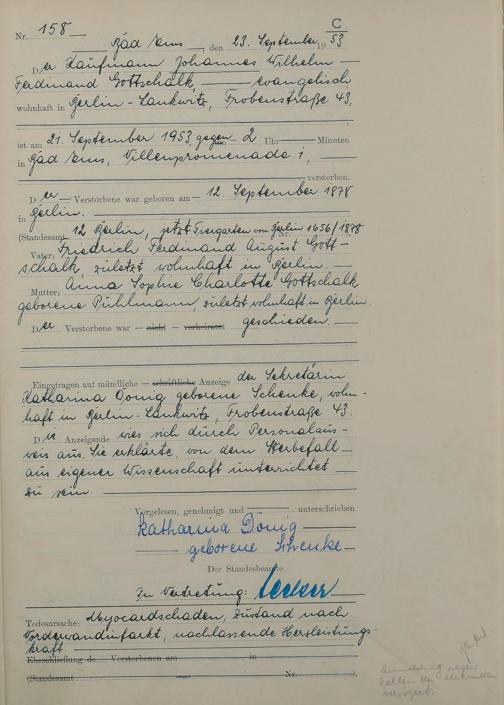 C
Nr. 158
Bad Ems, den 23. September 1953
Der Kaufmann Johannes Wilhelm
Ferdinand Gottschalk, evangelisch
wohnhaft in Berlin-Lankwitz, Frobenstraße 43,
ist am 21. September 1953, gegen 2 Uhr Minuten
in Bad Ems, Villenpromenade 1,
verstorben.
Der Verstorbene war geboren am 12. September 1878
in Berlin.
(Standesamt 12 Berlin, jetzt Tiergarten von Berlin Nr. 1656/1878
Vater: Friedrich Ferdinand August Gott-
schalk, zuletzt wohnhaft in Berlin.
Mutter: Anna Sophie Charlotte Gottschalk
geborene Pühlmann, zuletzt wohnhaft in Berlin.
Der Verstorbene war nicht verheiratet geschieden.
Eingetragen auf mündliche schriftliche Anzeige der Sekretärin
Katharina Dönig geborene Schenke, wohn-
haft in Berlin-Lankwitz, Frobenstraße 43.
Die Anzeigende wies sich durch Personalaus-
weis aus. Sie erklärte, von dem Sterbefall
aus eigener Wissenschaft unterrichtet
zu sein.
Vorgelesen, genehmigt und unterschrieben
Katharina Dönig
geborene Schenke
Der Standesbeamte
In Vertretung:
Todesursache: Myocardschaden, Zustand nach
Vorderwandinfarkt, nachlassende Herzleistungs-
kraft.
Eheschließung de Verstorbenen am in
(Standesamt Nr. ).